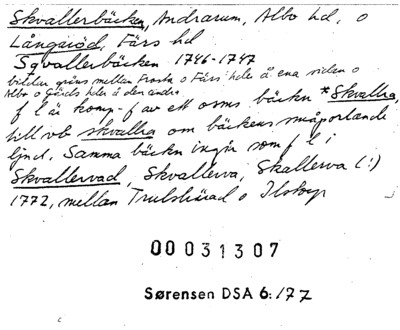 Skvallerbäcken, Andrarum, Albo hd, o
Långaröd, Färs hd
Sqvallerbäcken 1746-1747
bildar gräns mellan Frosta o Färs hder å ena sidan o
Albo o Gärds hder å den andra
f l är komp-f av ett orms bäckn *Skvallra,
till vb skvallra om bäckens småporlande
ljud. Samma bäckn ingår som f l i
Skvallervad, Skvallerva, Skallerva (!)
1772, mellan Trulshärad o Ilstorp
00031307
Sørensen DSA 6:/77